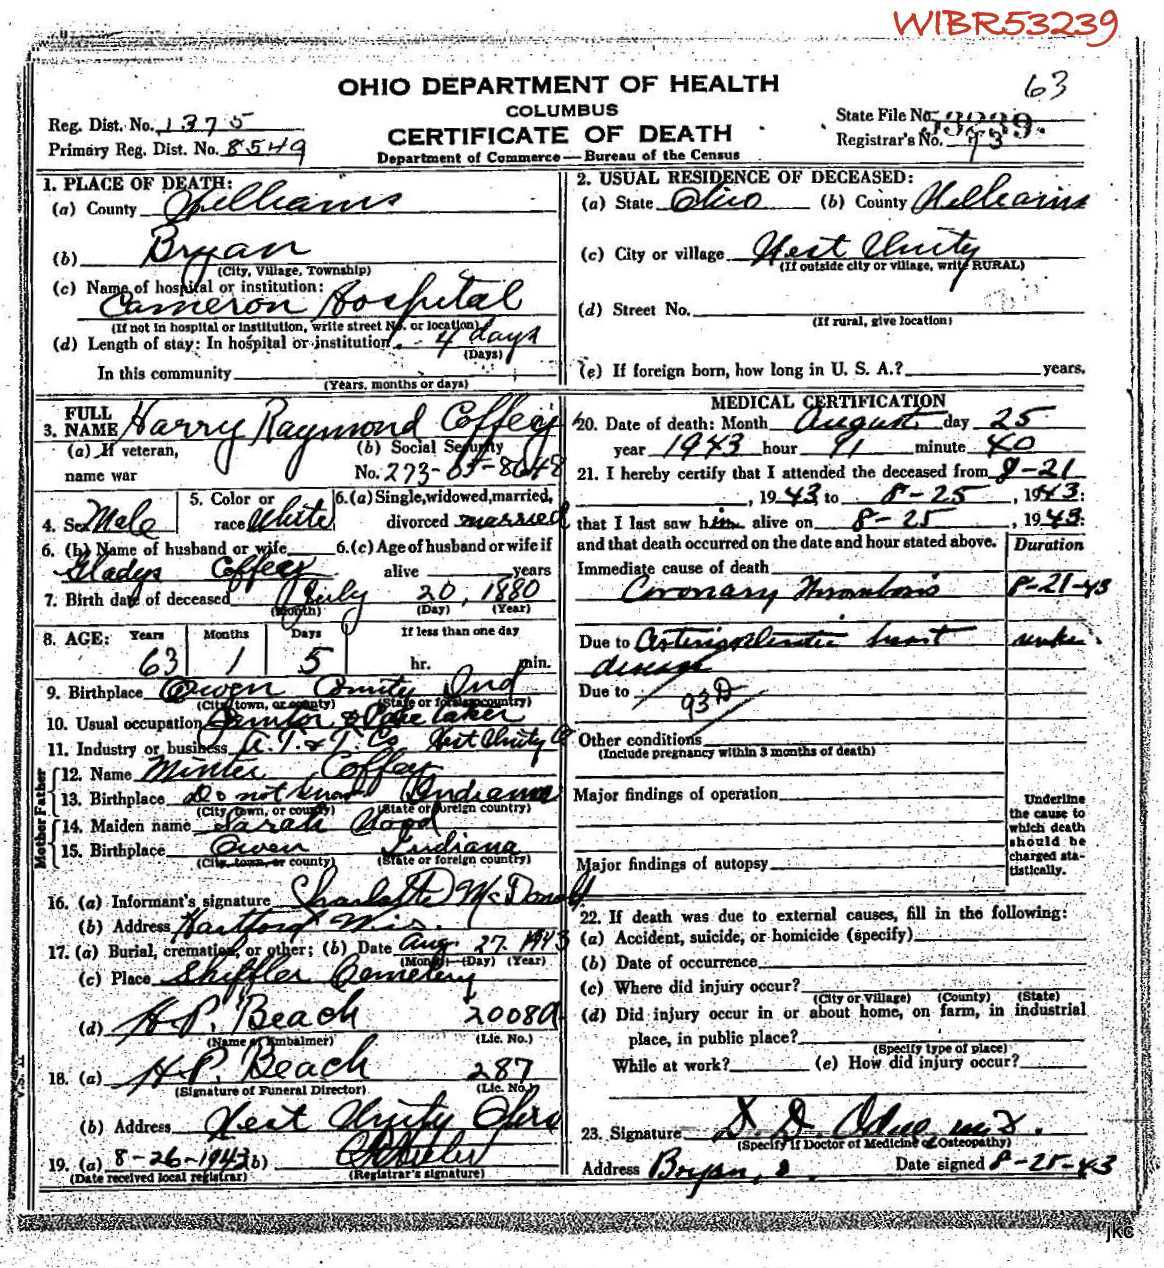 WIBR53239
63
OHIO DEPARTMENT OF HEALTH
COLUMBUS
CERTIFICATE OF DEATH
Department of Commerce—Bureau of the Census
Reg. Dist. No. 1375
Primary Reg. Dist. No. 8549
State File No. 53239.
Registrar's No. 73
1. PLACE OF DEATH:
(a) County Williams
(b) Bryan
(City, Village, Township)
(c) Name of hospital or institution:
Cameron Hospital
(If not in hospital or institution, write street No. or location)
(d) Length of stay: In hospital or institution 4 days
(Days)
In this community
(Years, months or days)
2. USUAL RESIDENCE OF DECEASED:
(a) State Ohio (b) County Williams
(c) City or village West Unity
(If outside city or village, write RURAL)
(d) Street No.
(If rural, give location)
(e) If foreign born, how long in U. S. A.? years.
3. FULL NAME Harry Raymond Coffey
(a) If veteran, name war
(b) Social Security No. 273-03-8648
4. Sex Male
5. Color or race White
6. (a) Single, widowed, married, divorced married
6. (b) Name of husband or wife
Gladys Coffey
6. (c) Age of husband or wife if alive years
7. Birth date of deceased July 20, 1880
(Month) (Day) (Year)
8. AGE: Years Months Days If less than one day
63 1 5 hr. min.
9. Birthplace Owen County Ind
(City, town, or county) (State or foreign country)
10. Usual occupation Janitor & Caretaker
11. Industry or business A.T.&T. Co West Unity O
Father
12. Name Minter Coffey
13. Birthplace Do not know Indiana
(City, town, or county) (State or foreign country)
Mother
14. Maiden name Sarah Wood
15. Birthplace Owen Indiana
(City, town, or county) (State or foreign country)
16. (a) Informant's signature Charlotte McDonald
(b) Address Hartford Wis.
17. (a) Burial, cremation, or other; (b) Date Aug. 27. 1943
(Month) (Day) (Year)
(c) Place Shiffler Cemetery
(d) H.P. Beach 2008A
(Name of Embalmer) (Lic. No.)
18. (a) H.P. Beach 287
(Signature of Funeral Director) (Lic. No.)
(b) Address West Unity Ohio
19. (a) 8-26-1943 (b)
(Date received local registrar) (Registrar's signature)
V.S. 11
MEDICAL CERTIFICATION
20. Date of death: Month August day 25
year 1943 hour 11 minute 40
21. I hereby certify that I attended the deceased from 8-21
, 1943 to 8-25, 1943:
that I last saw him alive on 8-25, 1943:
and that death occurred on the date and hour stated above. Duration
Immediate cause of death
Coronary Thrombosis 8-21-43
Due to Arteriosclerotic heart
disease
Due to
93D
Other conditions
(Include pregnancy within 3 months of death)
Major findings of operation
Major findings of autopsy
Underline
the cause to
which death
should be
charged sta-
tistically.
22. If death was due to external causes, fill in the following:
(a) Accident, suicide, or homicide (specify)
(b) Date of occurrence
(c) Where did injury occur?
(City or Village) (County) (State)
(d) Did injury occur in or about home, on farm, in industrial
place, in public place?
(Specify type of place)
While at work? (e) How did injury occur?
23. Signature M.D.
(Specify if Doctor of Medicine or Osteopathy)
Address Bryan, O. Date signed 8-25-43
jkc